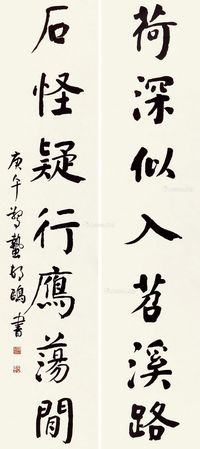 荷深似入苕溪路
石怪疑行鴈蕩間
庚午驚蟄鷗書